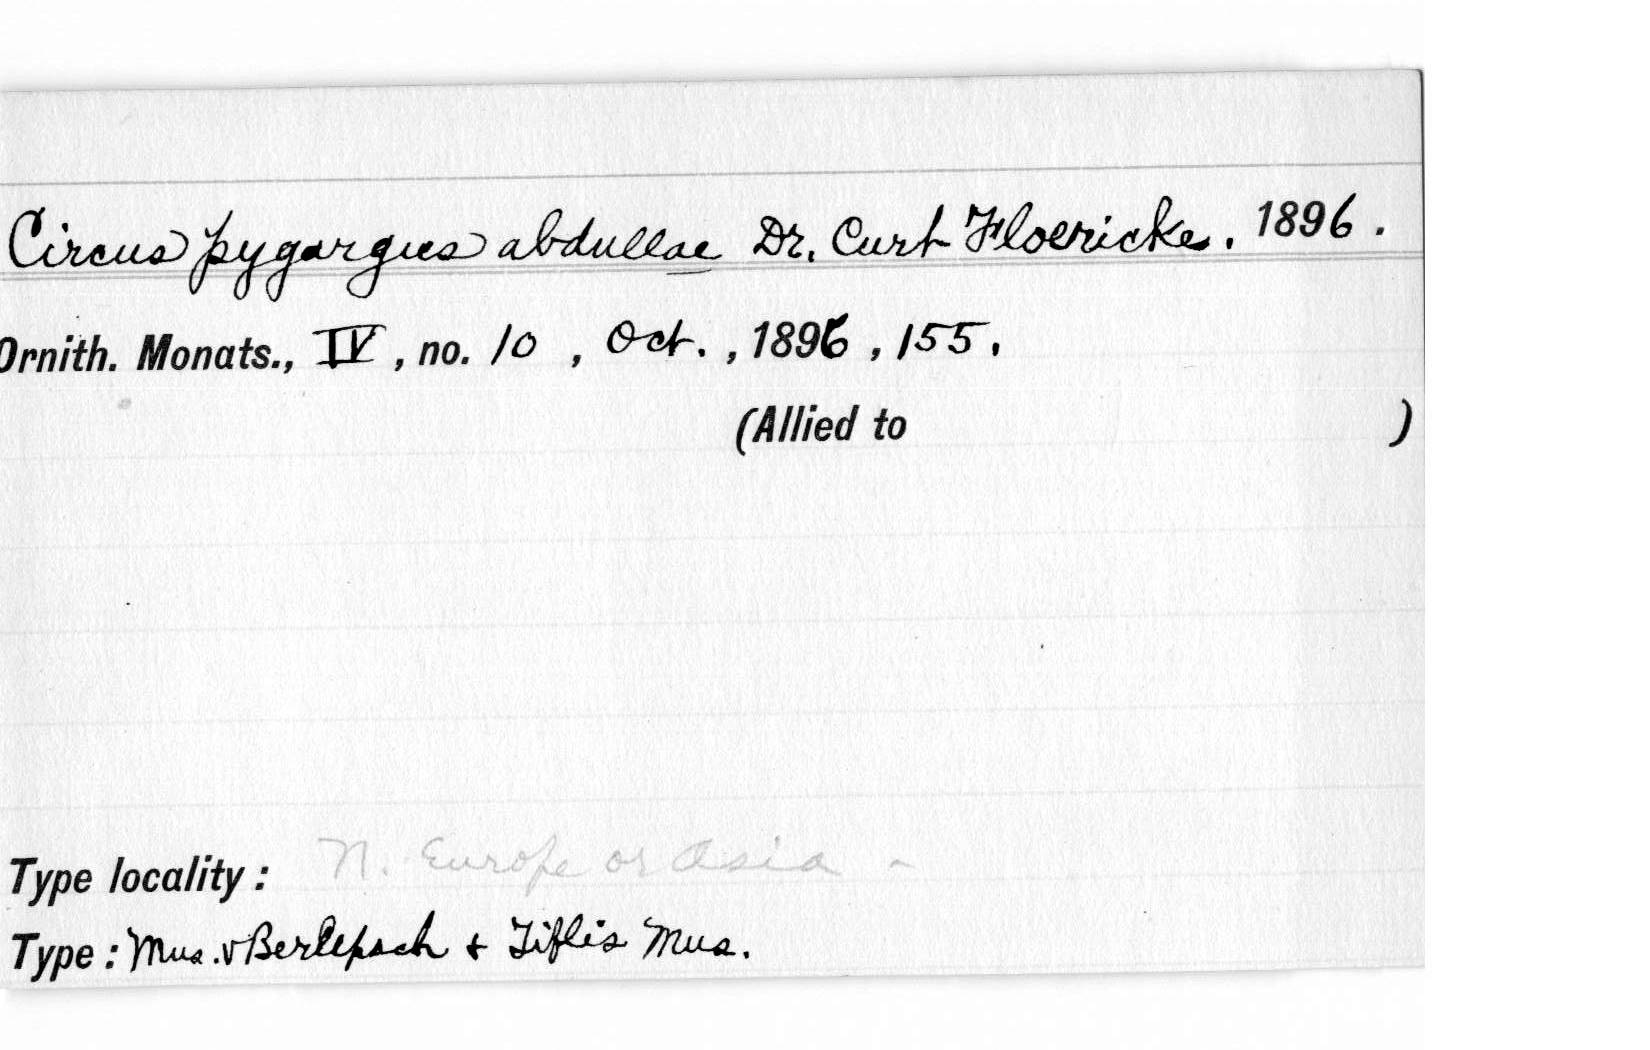 Circus pygargus abdullae Dr. Curt Floericke. 1896.
Ornith. Monats., IV, no. 10, Oct., 1896, 155.
(Allied to )
Type locality: N. Europe or Asia -
Type: Mus. v Berlepsch + Tiflis Mus.